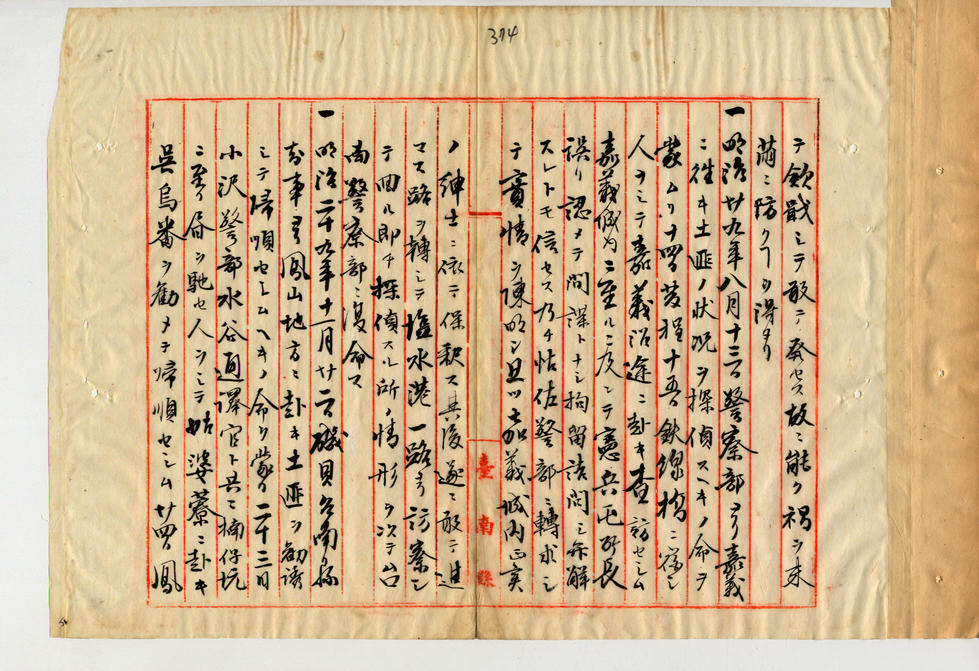 374
テ欽戢ミテ敢テ発セス故ニ能ク禍ヲ未
萠ニ防クヿヲ得タリ
一明治廿九年八月十三日警察部ヨリ嘉義
ニ往キ土匪ノ状況ヲ探偵スヘキノ命ヲ
蒙ムリ十四日発程十五日鉄線橋ニ宿シ
人ヲシテ嘉義沿途ニ赴キ査訪セシム
嘉義城内ニ至ルニ及ンテ憲兵屯所長
誤リ認メテ間諜トナシ拘留詰問ミ弁解
スレトモ信セス乃チ佐警部ニ轉求シ
テ實情ヲ陳明シ且ツ嘉義城内正実
ノ紳士ニ依テ保釈ス其後遂ニ敢テ進
マス路ヲ轉シテ塩水港一路ヲ訪察シ
テ回ル即チ探偵スル所ノ情形ヲ以テ台
南警察部ニ復命ス
一明治二十九年十一月廿二日磯貝台南縣
知事ヨリ鳳山地方ニ赴キ土匪ヲ勧誘
シテ帰順セシムヘキノ命ヲ蒙リ二十三日
小沢警部水谷通譯官ト共ニ楠仔坑
ニ至リ昼ヲ馳セ人ヲシテ姑婆藔ニ赴キ
呉烏番ヲ勧メテ帰順セシム廿四日鳳
臺南縣